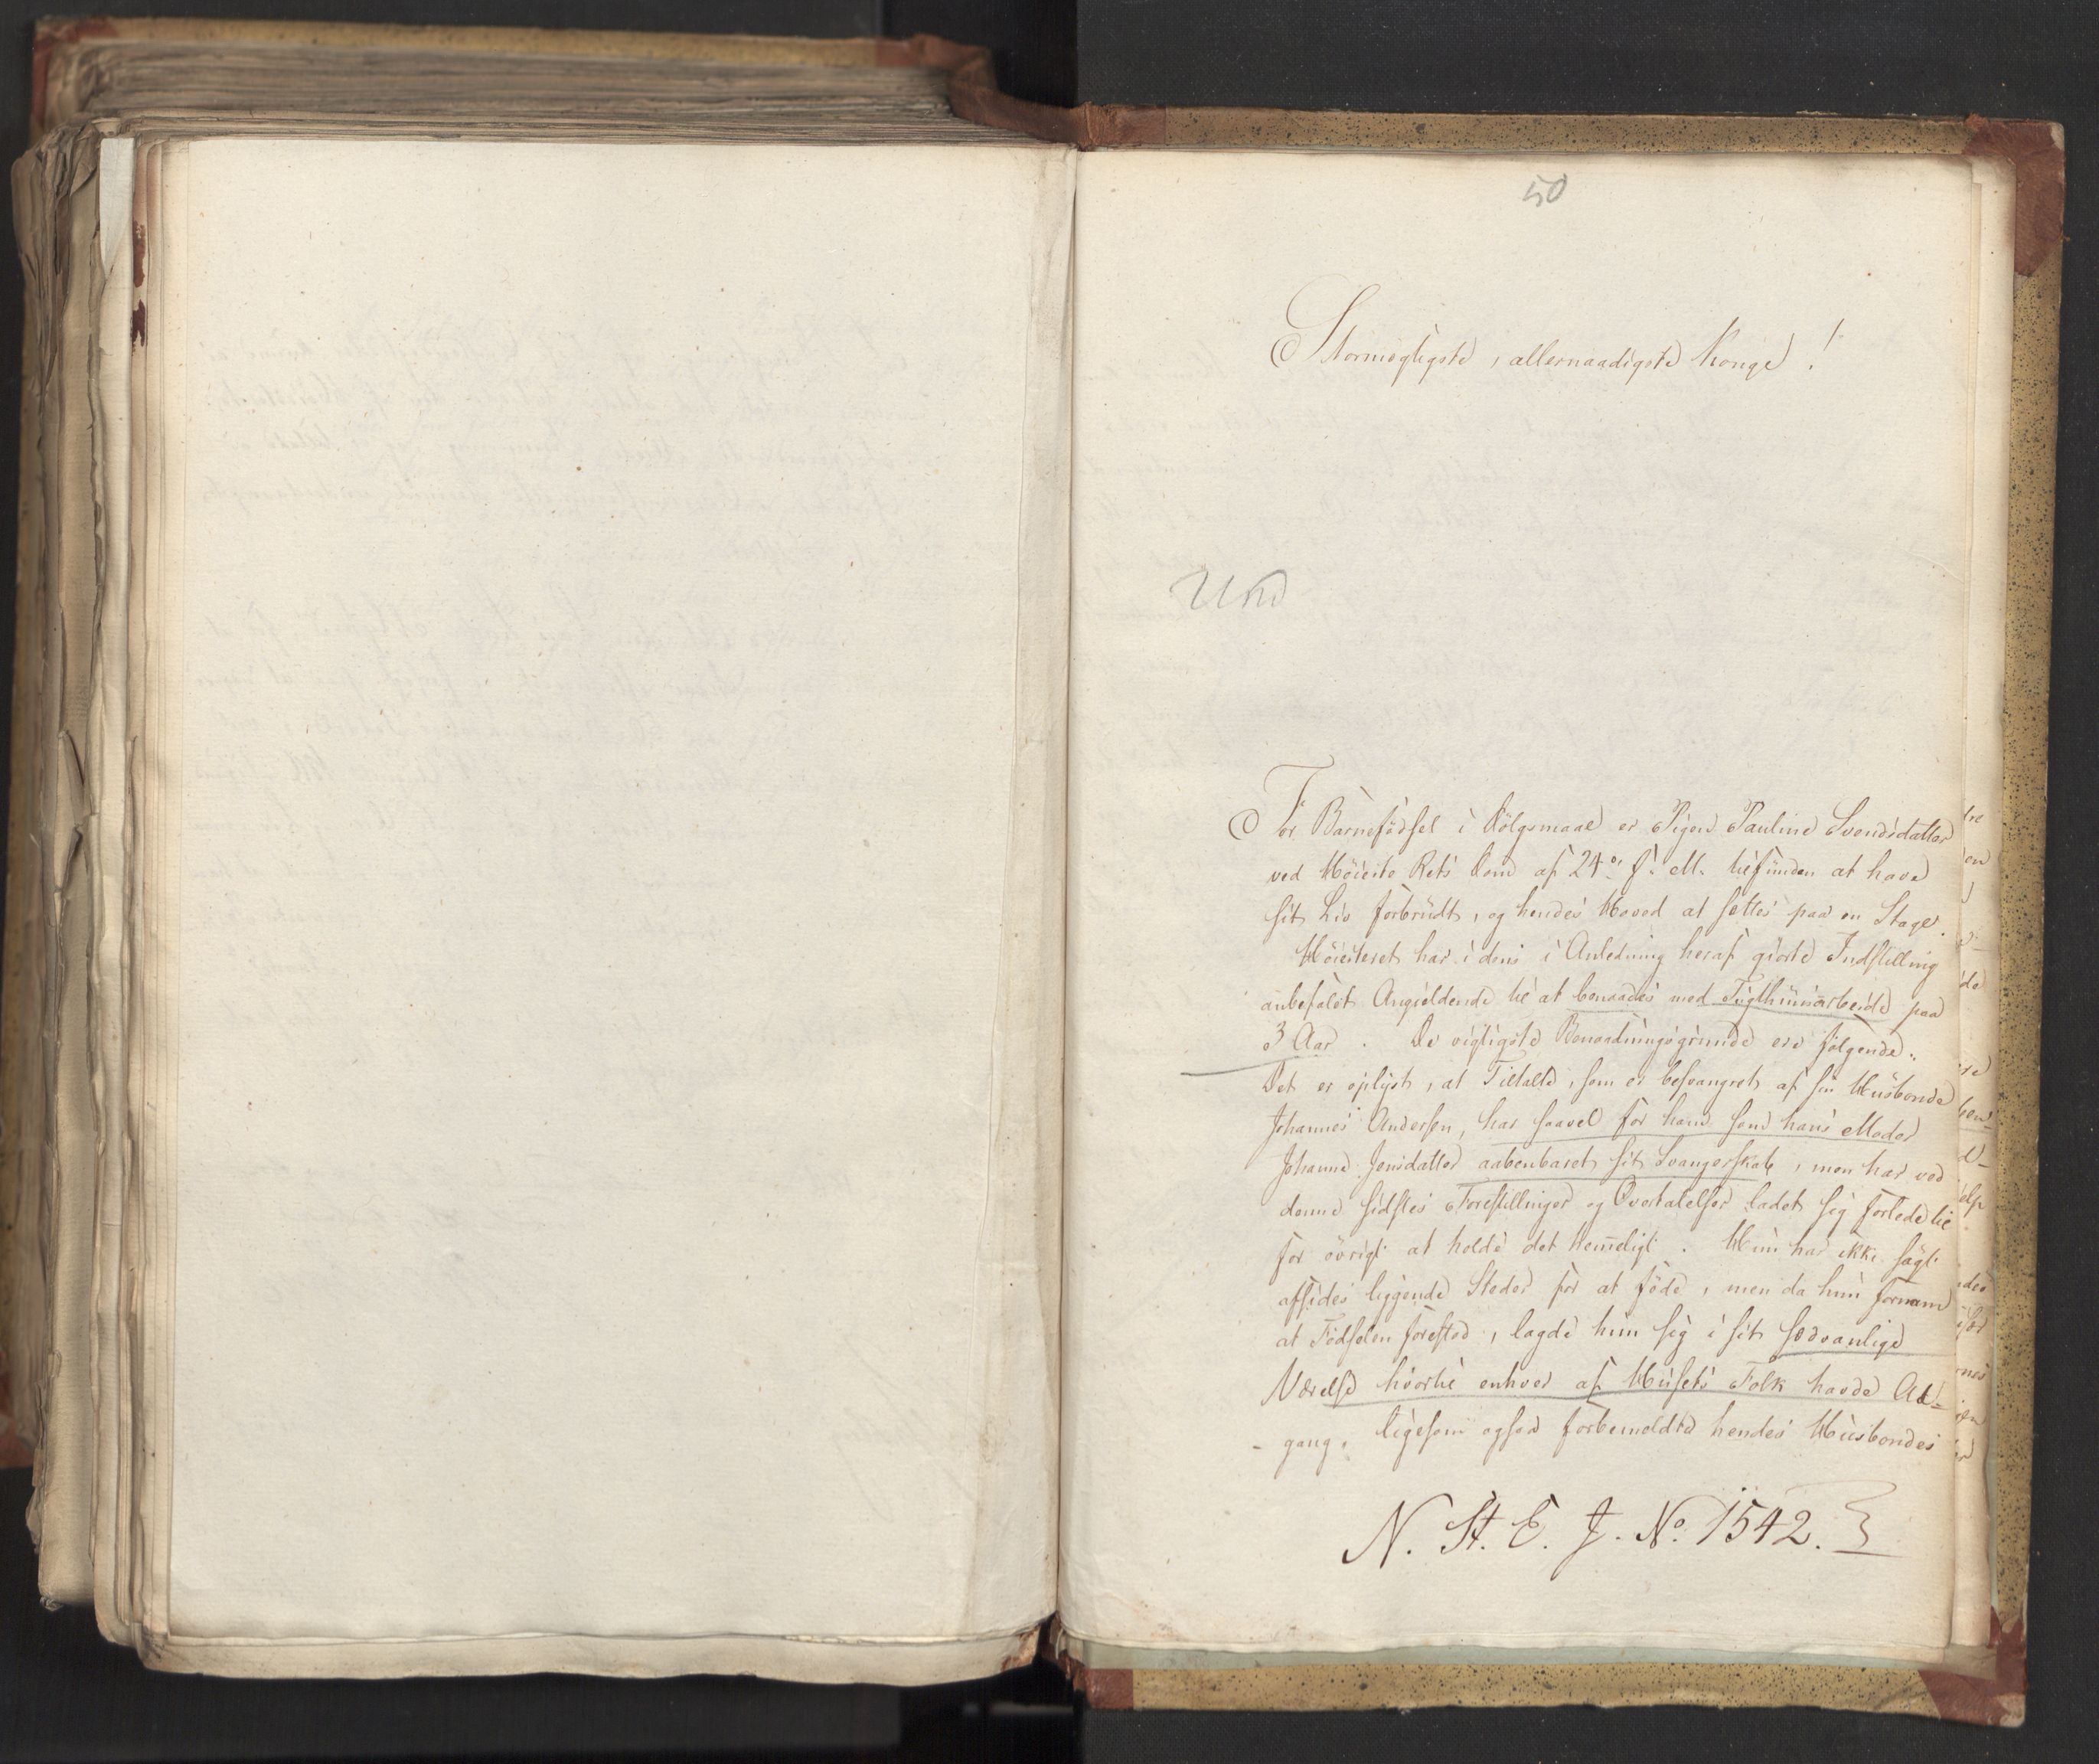 50
Stormægtigste, allernaadigste Konge!
For Barnefödsel i Dölgsmaal er Pigen Pauline Svendsdatter
ved Höieste Rets Dom af 24de f. M. befunden at have
sit Liv forbrudt, og hendes Hoved at settes paa en Stage.
Höiesteret har i dens i Anledning heraf giorte Indstilling
anbefalet Angieldende til at benaades med Tugthuusarbeide paa
3 Aar. De vigtigste Benaadningsgrunde ere fölgende:
Det er oplyst, at Tiltalte, som er besvangret af sin Huusbonde
Johannes Andersen, har saavel for ham som hans Moder
Johanne Jensdatter aabenbaret sit Svangerskab, men har ved
denne sidstes Forestillinger og Overtalelser ladet sig forlede til
for övrigt at holde det hemeligt. Hun har ikke sögt
afsides liggende Steder for at föde, men da hun fornam
at Födselen forestod, lagde hun sig i sit sædvanlige
Værelse hvortil enhver af Husets Folk havde Ad-
-gang, ligesom ogsaa forbemeldte hendes Huusbondes
N. St. E. J. No. 1542.